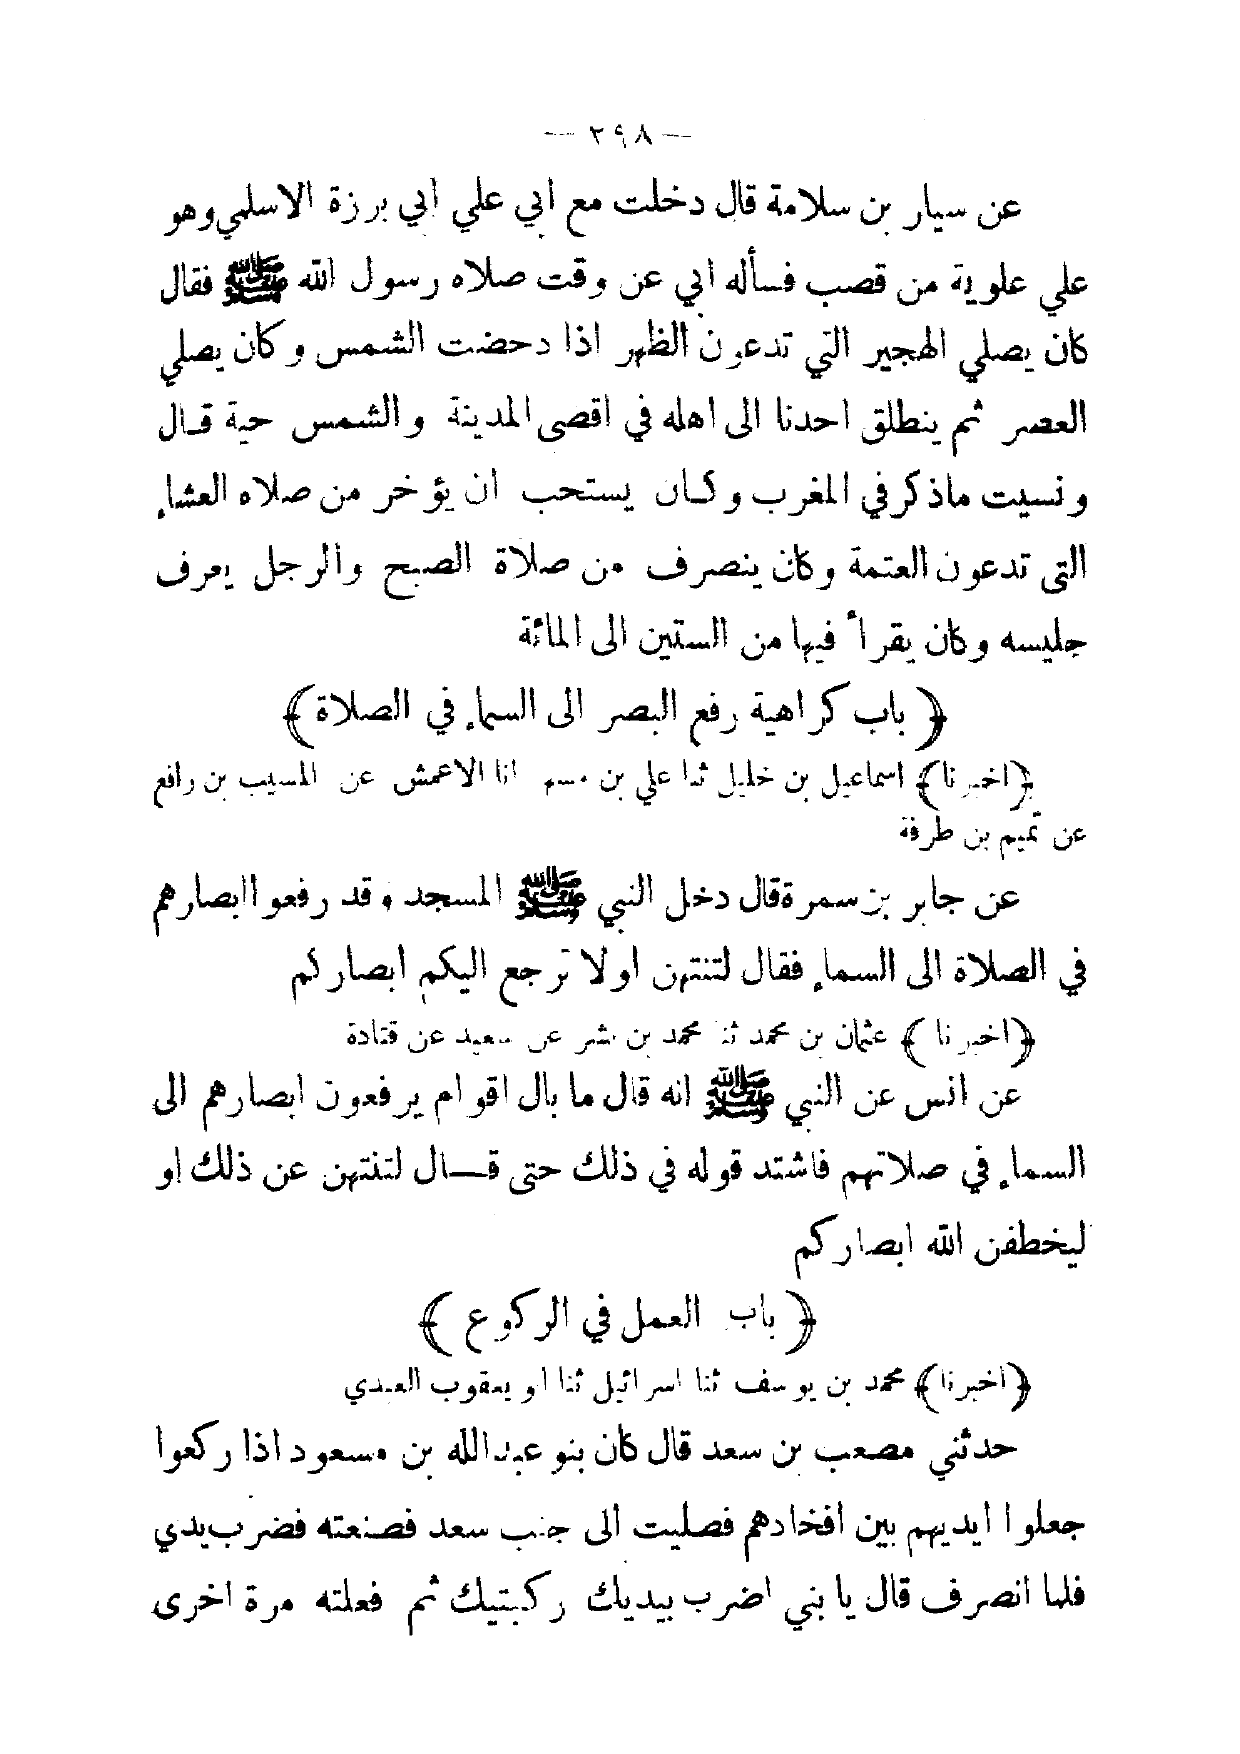 — ٢٩٨ —
عن سيار بن سلامة قال دخلت مع ابي علي ابي برزة الاسلمي وهو
علي علوية من قصب فسأله ابي عن وقت صلاه رسول الله ﷺ فقال
كان يصلي الهجير التي تدعون الظهر اذا دحضت الشمس وكان يصلي
العصر ثم ينطلق احدنا الى اهله في اقصى المدينة والشمس حية قال
ونسيت ماذكر في المغرب وكان يستحب ان يؤخر من صلاه العشاء
التى تدعون العتمة وكان ينصرف من صلاة الصبح والرجل يعرف
جليسه وكان يقرأ فيها من الستين الى المائة
﴿ باب كراهية رفع البصر الى السماء في الصلاة ﴾
﴿اخبرنا﴾ اسماعيل بن خليل ثنا علي بن مسهر انا الاعمش عن المسيب بن رافع
عن تميم بن طرفة
عن جابر بن سمرة قال دخل النبي ﷺ المسجد وقد رفعوا ابصارهم
في الصلاة الى السماء فقال لتنتهن اولا ترجع اليكم ابصاركم
﴿اخبرنا ﴾ عثمان بن محمد ثنا محمد بن بشر عن سعيد عن قتادة
عن انس عن النبي ﷺ انه قال ما بال اقوام يرفعون ابصارهم الى
السماء في صلاتهم فاشتد قوله في ذلك حتى قـــال لتنتهن عن ذلك او
ليخطفن الله ابصاركم
﴿ باب العمل في الركوع ﴾
﴿اخبرنا﴾ محمد بن يوسف ثنا اسرائيل ثنا ابو يعقوب العبدي
حدثني مصعب بن سعد قال كان بنو عبدالله بن مسعود اذا ركعوا
جعلوا ايديهم بين افخادهم فصليت الى جنب سعد فصنعته فضرب يدي
فلما انصرف قال يا بني اضرب بيديك ركبتيك ثم فعلته مرة اخرى